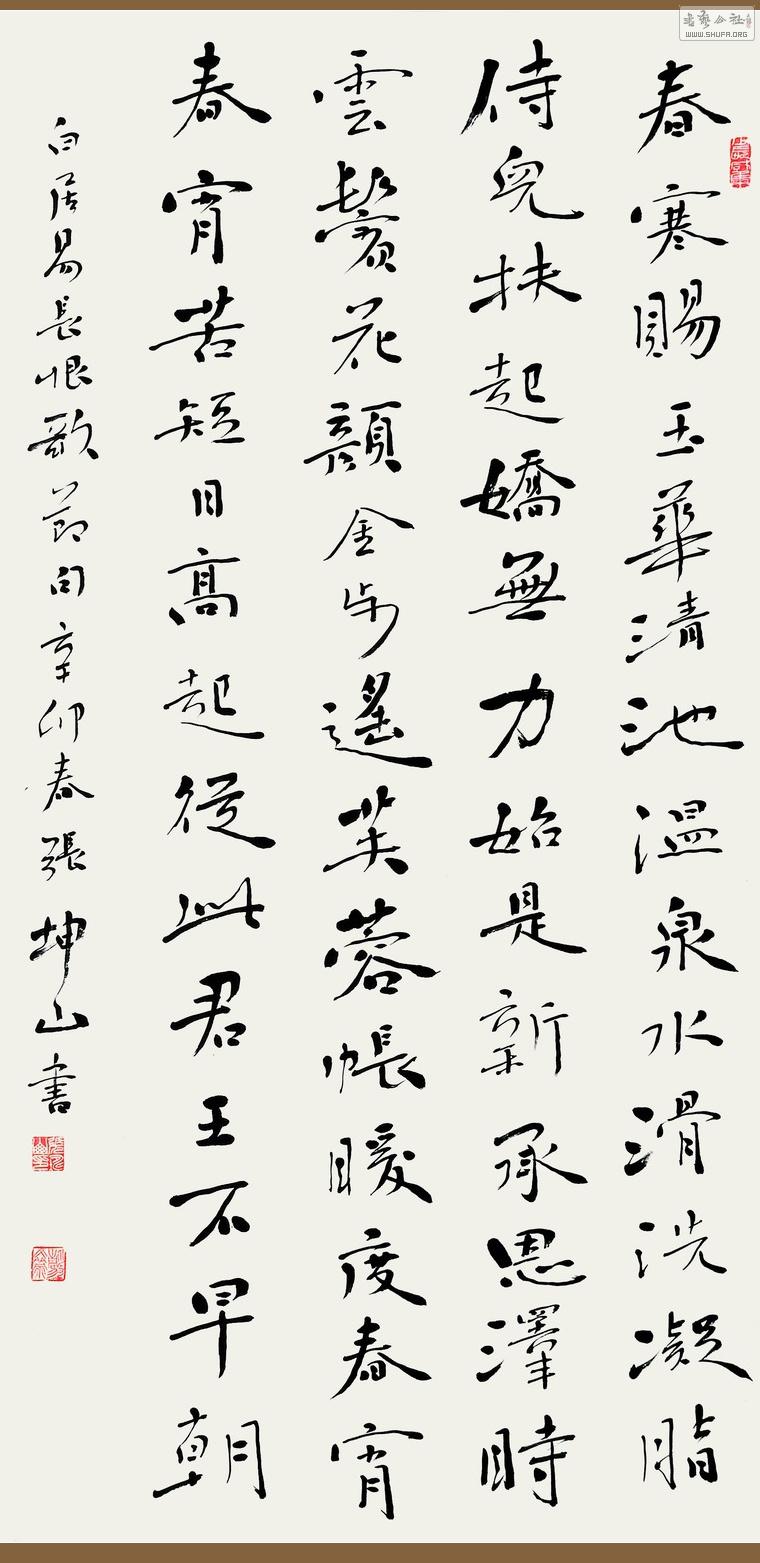 春寒賜玉華清池温泉水滑洗凝脂
侍兒扶起嬌無力始是新承恩澤時
雲鬢花顏金步遙芙蓉帳暖度春宵
春宵苦短日高起從此君王不早朝
白居易長恨歌節句辛卯春張坤山書
書藝公社
WWW.SHUFA.ORG